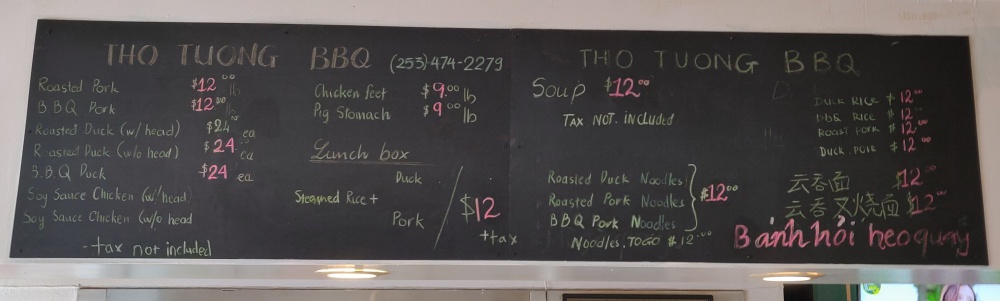 THO TUONG BBQ (253)474-2279
Roasted Pork $12.00 lb
BBQ Pork $12.00 lb
Roasted Duck (w/ head) $24 ea
Roasted Duck (w/o head) $24 ea
B.B.Q Duck $24 ea
Soy Sauce Chicken (w/ head)
Soy Sauce Chicken (w/o head
-tax not included
Chicken feet $9.00 lb
Pig Stomach $9.00 lb
Lunch box
Steamed Rice +
Duck
Pork
$12
+tax
THO TUONG BBQ
Soup $12.00
TAX NOT. INCLUDED
Roasted Duck Noodles
Roasted Pork Noodles
BBQ Pork Noodles
$12.00
NOODLES.TOGO $12.00
DUCK RICE $12.00
BBQ RICE $12.00
ROAST PORK $12.00
DUCK. PORK $12.00
云吞面 $12.00
云吞叉烧面 $12.00
Bánh hỏi heo quay